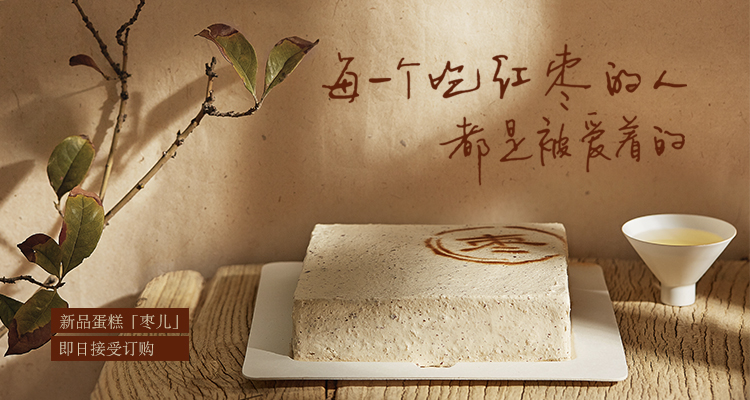 每一个吃红枣的人
都是被爱着的
枣
新品蛋糕「枣儿」
即日接受订购